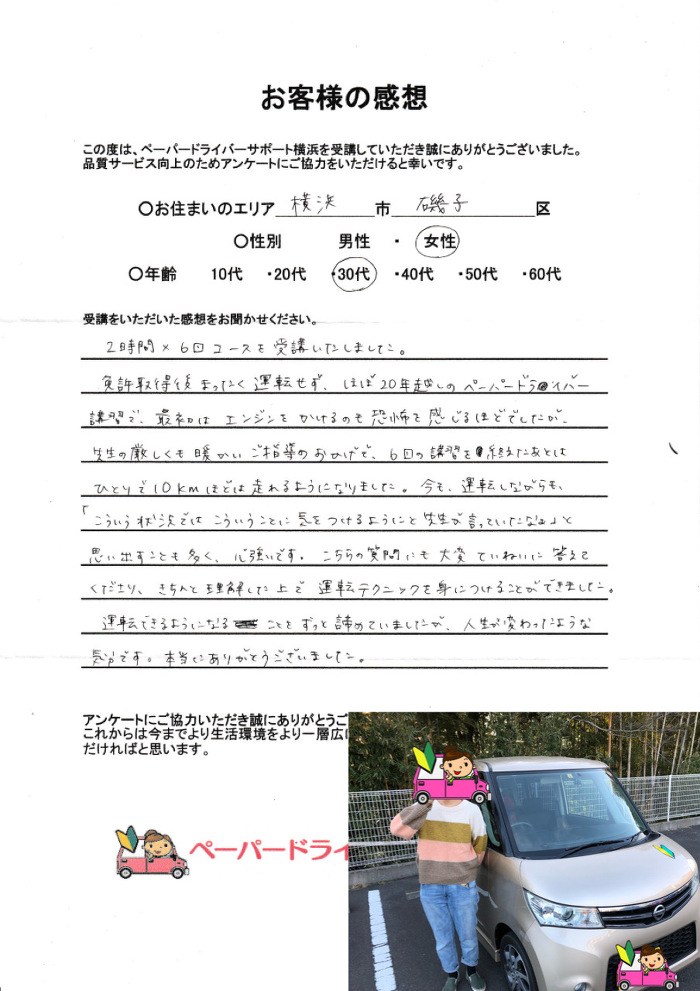 お客様の感想
この度は、ペーパードライバーサポート横浜を受講していただき誠にありがとうございました。
品質サービス向上のためアンケートにご協力をいただけると幸いです。
〇お住まいのエリア 横浜 市 磯子 区
〇性別 男性 ・ 女性
〇年齢 10代 ・20代 ・30代 ・40代 ・50代 ・60代
受講をいただいた感想をお聞かせください。
2時間×6回コースを受講いたしました。
免許取得後まったく運転せず、ほぼ20年越しのペーパードライバー
講習で、最初はエンジンをかけるのも恐怖を感じるほどでしたが、
先生の厳しくも暖かいご指導のおかげで、6回の講習を終えたあとは
ひとりで10kmほどは走れるようになりました。今も、運転しながらも、
「こういう状況ではこういうことに気をつけるようにと先生が言っていたなぁ」と
思い出すことも多く、心強いです。こちらの質問にも大変ていねいに答えて
くださり、きちんと理解した上で運転テクニックを身につけることができました。
運転できるようになることをずっと諦めていましたが、人生が変わったような
気分です。本当にありがとうございました。
アンケートにご協力いただき誠にありがとうご
これからは今までより生活環境をより一層広に
だければと思います。
ペーパードライ